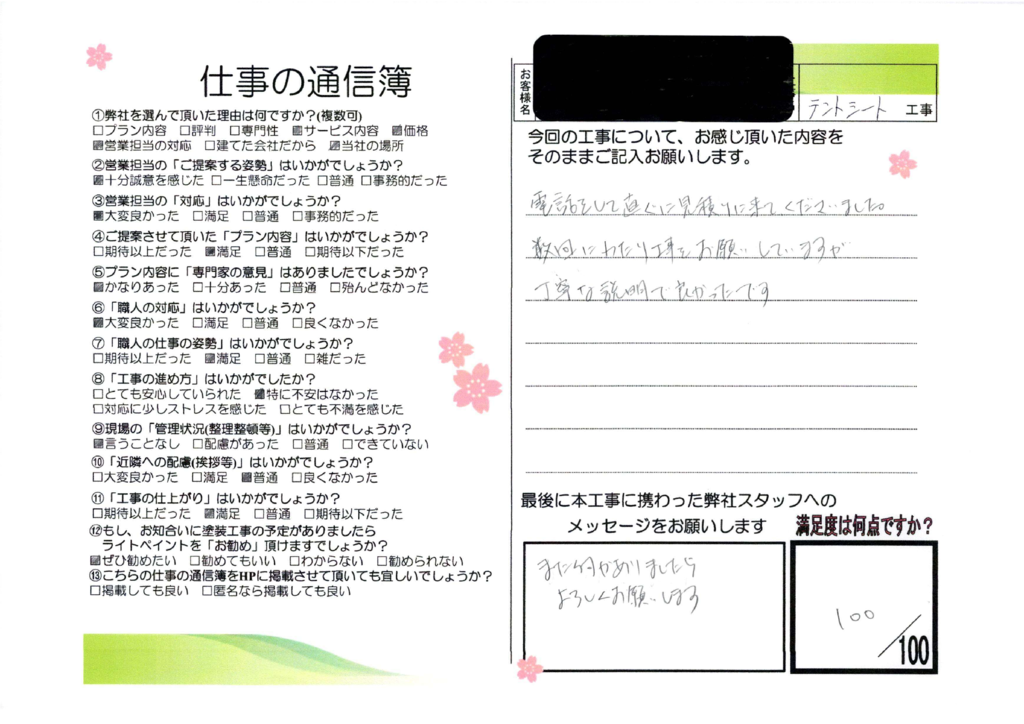 仕事の通信簿
①弊社を選んで頂いた理由は何ですか?(複数可)
□プラン内容 □評判 □専門性 ■サービス内容 ■価格
■営業担当の対応 □建てた会社だから ☑当社の場所
②営業担当の「ご提案する姿勢」はいかがでしょうか?
■十分誠意を感じた □一生懸命だった □普通 □事務的だった
③営業担当の「対応」はいかがでしょうか?
■大変良かった □満足 □普通 □事務的だった
④ご提案させて頂いた「プラン内容」はいかがでしょうか?
□期待以上だった ■満足 □普通 □期待以下だった
⑤プラン内容に「専門家の意見」はありましたでしょうか?
■かなりあった □十分あった □普通 □殆んどなかった
⑥「職人の対応」はいかがでしょうか?
■大変良かった □満足 □普通 □良くなかった
⑦「職人の仕事の姿勢」はいかがでしょうか?
□期待以上だった ■満足 □普通 □雑だった
⑧「工事の進め方」はいかがでしたか?
□とても安心していられた ■特に不安はなかった
□対応に少しストレスを感じた □とても不満を感じた
⑨現場の「管理状況(整理整頓等)」はいかがでしょうか?
■言うことなし □配慮があった □普通 □できていない
⑩「近隣への配慮(挨拶等)」はいかがでしょうか?
□大変良かった □満足 ■普通 □良くなかった
⑪「工事の仕上がり」はいかがでしょうか?
□期待以上だった ■満足 □普通 □期待以下だった
⑫もし、お知合いに塗装工事の予定がありましたら
ライトペイントを「お勧め」頂けますでしょうか?
■ぜひ勧めたい □勧めてもいい □わからない □勧められない
⑬こちらの仕事の通信簿をHPに掲載させて頂いても宜しいでしょうか?
□掲載しても良い □匿名なら掲載しても良い
お客様名
テントシート 工事
今回の工事について、お感じ頂いた内容を
そのままご記入お願いします。
電話をして直ぐに見積りに来てくださいました。
数回にわたり工事をお願いしていますが
丁寧な説明で良かったです
最後に本工事に携わった弊社スタッフへの
メッセージをお願いします
また何かありましたら
よろしくお願いします
満足度は何点ですか?
100
/100